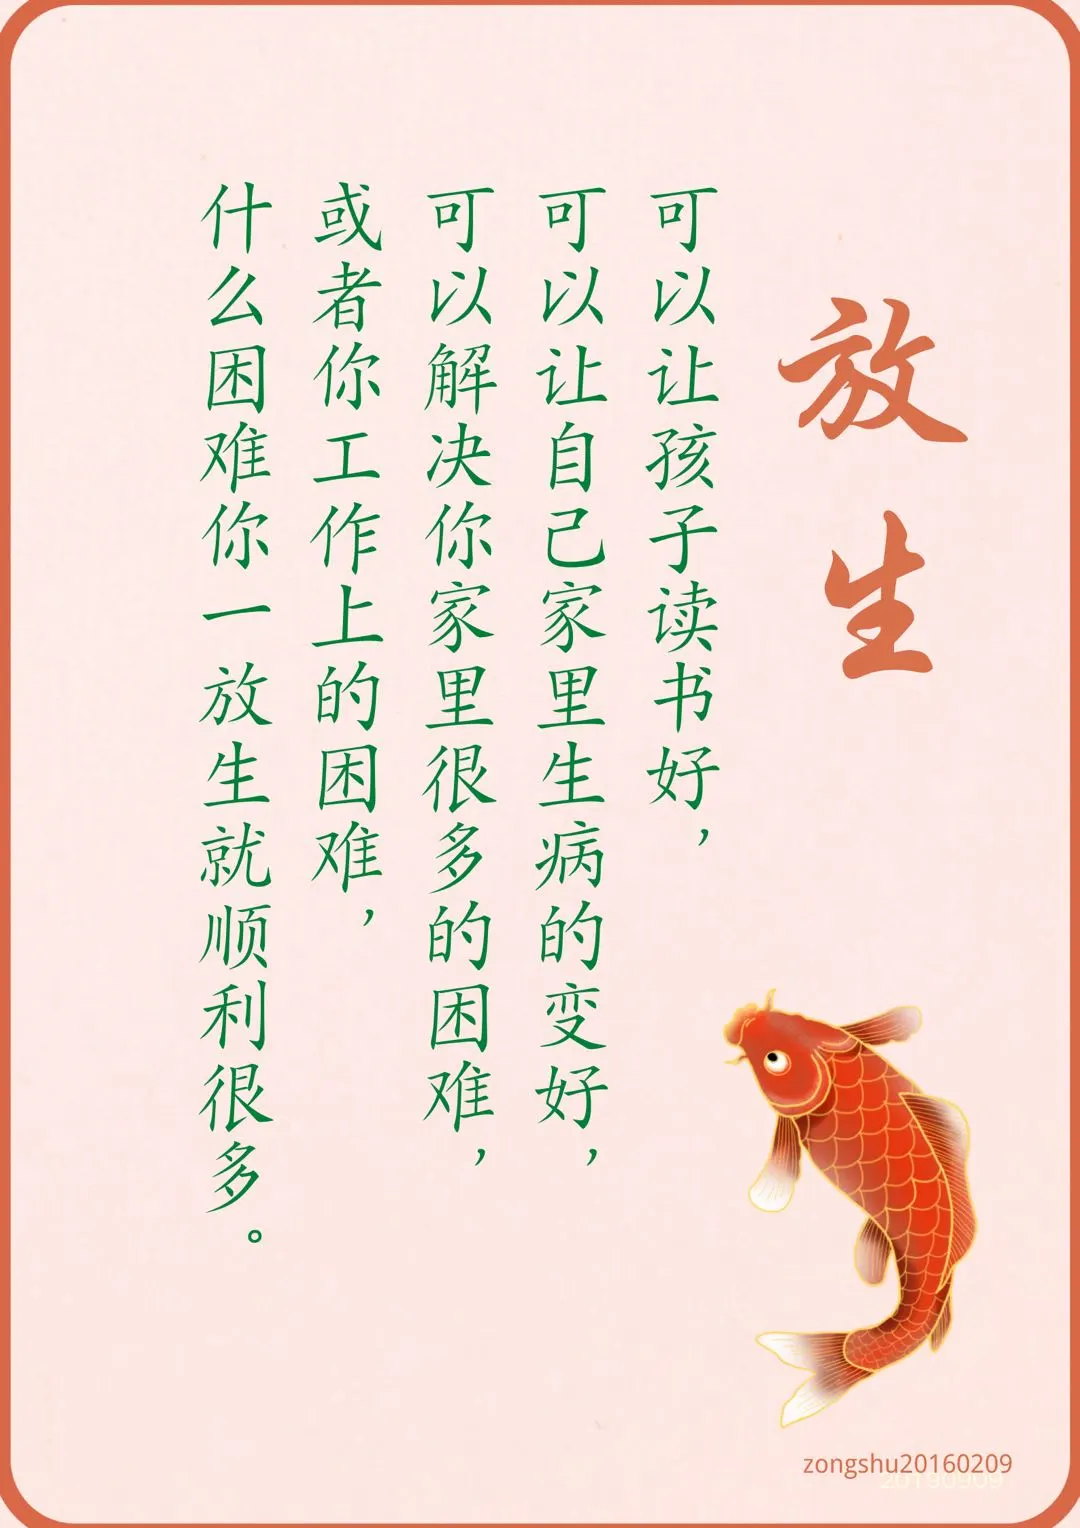 放生
可以让孩子读书好，
可以让自己家里生病的变好，
可以解决你家里很多的困难，
或者你工作上的困难，
什么困难你一放生就顺利很多。
zongshu20160209
20190909